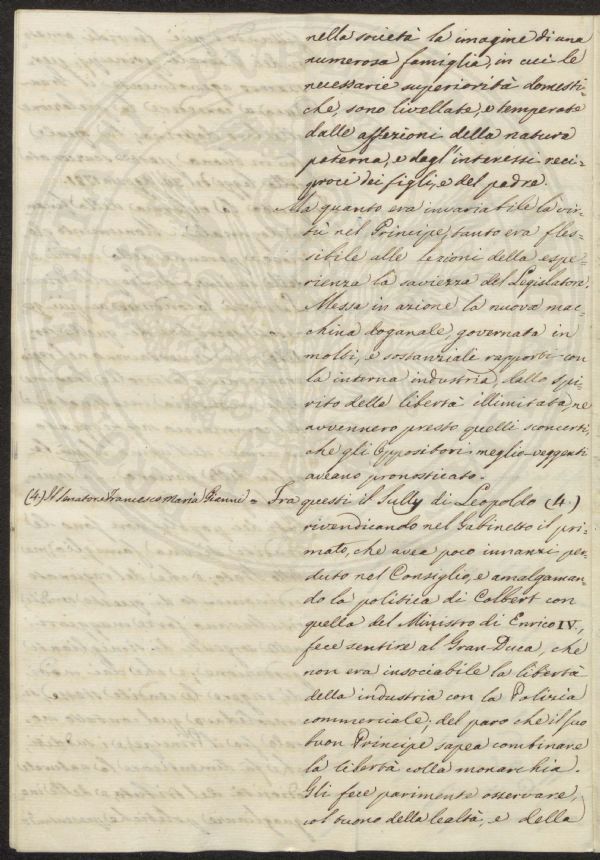 nella società la imagine di una
numerosa famiglia, in cui le
necessarie superiorità domesti-
che, sono livellate, e temperate
dalle affezioni della natura
paterna, e dagl'interessi reci-
proci dei figli, e del padre.
Ma quanto era invariabile la vir-
tù nel Principe, tanto era fles-
sibile alle lezioni della espe-
rienza la saviezza del Legislatore.
Messa in azione la nuova mac-
china doganale, governata in
molti, e sostanziali rapporti con
la interna industria, dallo spi-
rito della libertà illimitata, ne
avvennero presto quelli sconcerti,
che gli Oppositori meglio-veggenti
aveano pronosticato.
(4) Il Senatore Francesco Maria Gianni = Fra questi il Sully di Leopoldo (4.)
rivendicando nel Gabinetto il pri-
mato, che avea poco innanzi per-
duto nel Consiglio, e amalgaman-
do la politica di Colbert con
quella del Ministro di Enrico IV,
fece sentire al Gran-Duca, che
non era insociabile la libertà
della industria con la Polizia
commerciale; del paro che il suo
buon Principe sapea combinare
la libertà colla monarchia.
Gli fece parimente osservare,
col buono della lealtà, e della